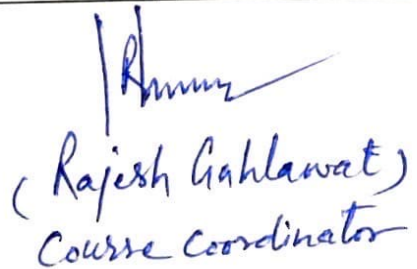 (Rajesh Gahlawat)
Course Coordinator